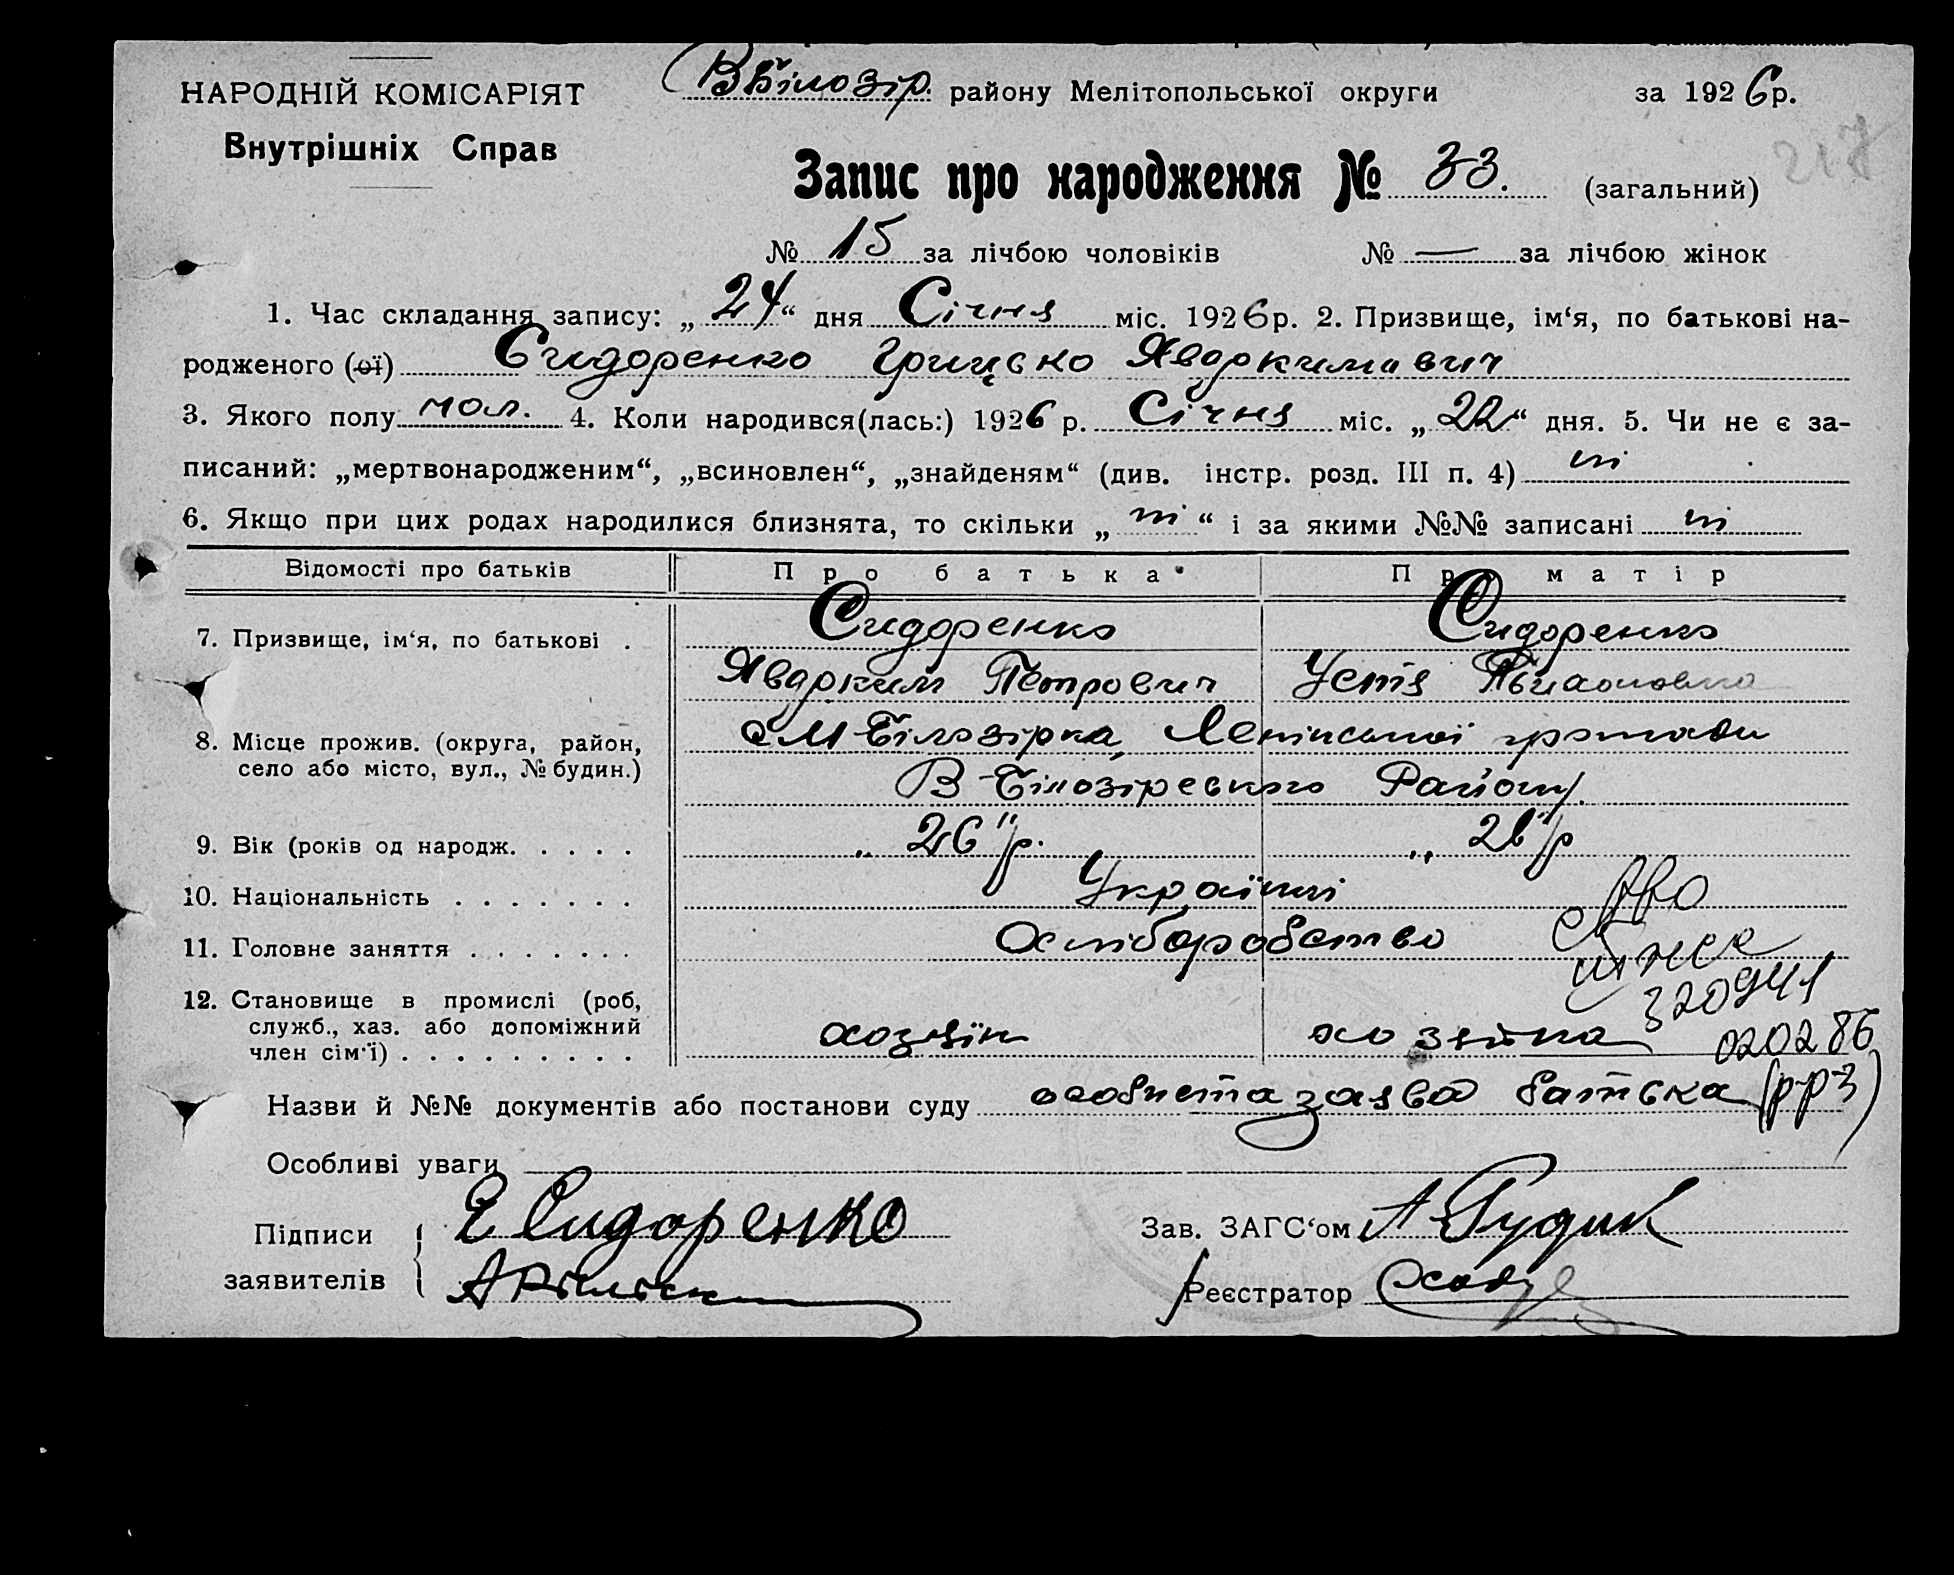 НАРОДНІЙ КОМІСАРІЯТ
Внутрішніх Справ
ВБілозір. району Мелітопольської округи за 1926р.
217
Запис про народження № 33. (загальний)
№ 15 за лічбою чоловіків № — за лічбою жінок
1. Час складання запису: „24“ дня Січня міс. 1926р. 2. Призвище, ім‘я, по батькові на-
родженого (ої) Сидоренко Грицько Явдокимович
3. Якого полу чол. 4. Коли народився(лась:) 1926 р. Січня міс. „22“ дня. 5. Чи не є за-
писаний: „мертвонародженим“, „всиновлен“, „знайденям“ (див. інстр. розд. III п. 4) ні
6. Якщо при цих родах народилися близнята, то скільки „ні“ і за якими №№ записані ні
Відомості про батьків Про батька Про матір
7. Призвище, ім‘я, по батькові . Сидоренко Сидоренко
Явдоким Петрович Устя
8. Місце прожив. (округа, район,
село або місто, вул., № будин.)
с М Білозірка, Ленінської громади
В-Білозірського Району.
9. Вік (років од народж. . . . . „26“ р. „26“ р
10. Національність . . . . . . . Українці
11. Головне заняття . . . . . . . Хліборобство
12. Становище в промислі (роб,
служб., хаз. або допоміжний
член сім‘ї) . . . . . . . . . хозяїн хозяйка
320941
020286
Назви й №№ документів або постанови суду особиста заява батька (рр3)
Особливі уваги
Підписи
заявителів
Е Сидоренко
Зав. ЗАГС‘ом А Рудик
Реєстратор